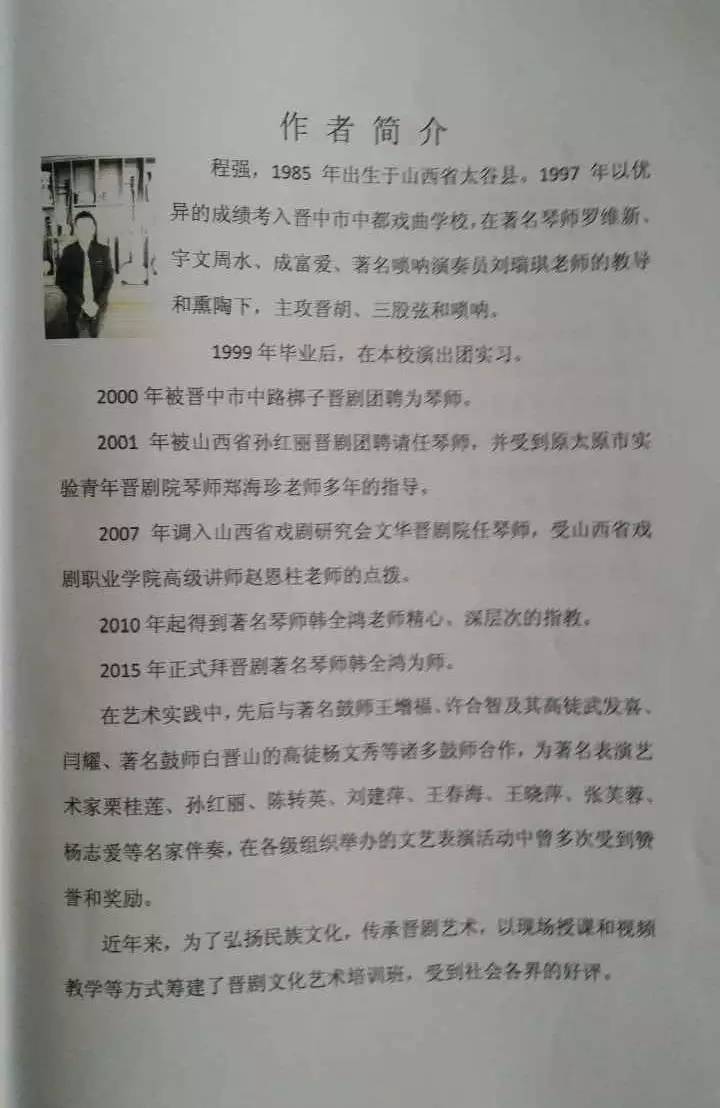 作者简介
程强，1985 年出生于山西省太谷县。1997 年以优
异的成绩考入晋中市中都戏曲学校，在著名琴师罗维新、
宇文周水、成富爱、著名唢呐演奏员刘瑞琪老师的教导
和熏陶下，主攻晋胡、三股弦和唢呐。
1999 年毕业后，在本校演出团实习。
2000 年被晋中市中路梆子晋剧团聘为琴师。
2001 年被山西省孙红丽晋剧团聘请任琴师，并受到原太原市实
验青年晋剧院琴师郑海珍老师多年的指导。
2007 年调入山西省戏剧研究会文华晋剧院任琴师，受山西省戏
剧职业学院高级讲师赵恩柱老师的点拨。
2010 年起得到著名琴师韩全鸿老师精心、深层次的指教。
2015 年正式拜晋剧著名琴师韩全鸿为师。
在艺术实践中，先后与著名鼓师王增福、许合智及其高徒武发喜、
闫耀、著名鼓师白晋山的高徒杨文秀等诸多鼓师合作，为著名表演艺
术家栗桂莲、孙红丽、陈转英、刘建萍、王春海、王晓萍、张芙蓉、
杨志爱等名家伴奏，在各级组织举办的文艺表演活动中曾多次受到赞
誉和奖励。
近年来，为了弘扬民族文化，传承晋剧艺术，以现场授课和视频
教学等方式筹建了晋剧文化艺术培训班，受到社会各界的好评。